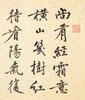 尚有經霜意
橫山幾樹紅
待看陽氣復